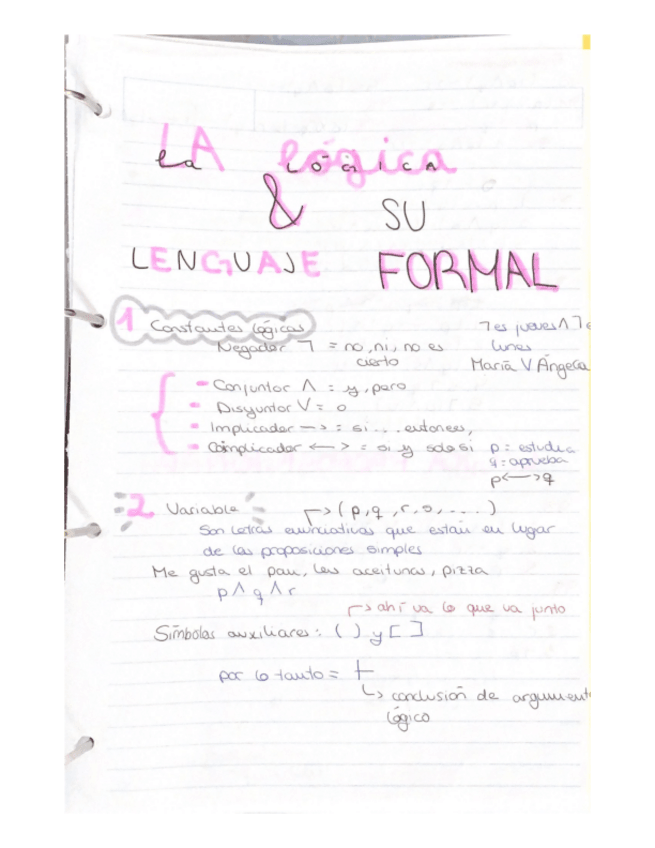 La Lógica
& SU
LENGUAJE FORMAL
1 Constantes lógicas
Negador ꓶ = no, ni, no es
cierto
ꓶ es jueves Λ ꓶ e
lunes
María V Ángela
- Conjuntor Λ : y, pero
- Disyuntor V = o
- Implicador —> : si ... entonces,
- Coimplicador <—> = si y solo si
p = estudia
q = aprueba
p<—>q
2 Variable
(p, q, r, s, ....)
Son letras enunciativas que están en lugar
de las proposiciones simples
Me gusta el pan, las aceitunas, pizza
p Λ q Λ r
ahí va lo que va junto
Símbolos auxiliares: ( ) y [ ]
por lo tanto = ⊢
conclusión de argument
lógico